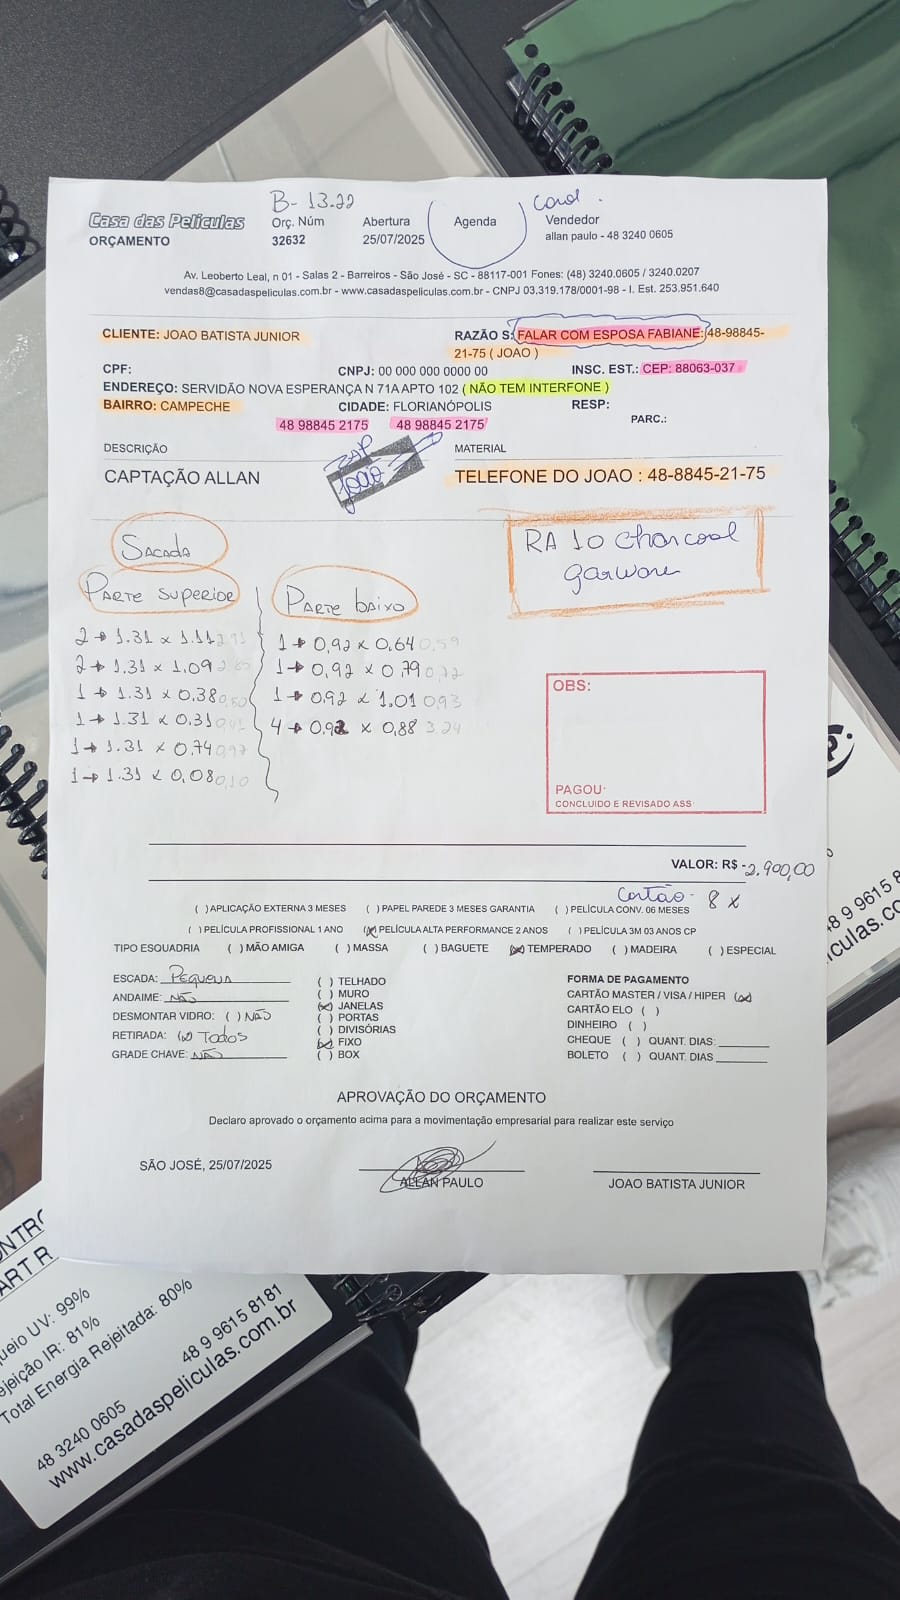 B- 13.22
Casa das Películas
Orç. Núm
Abertura
Agenda
Vendedor
ORÇAMENTO
32632
25/07/2025
allan paulo - 48 3240 0605
Av. Leoberto Leal, n 01 - Salas 2 - Barreiros - São José - SC - 88117-001 Fones: (48) 3240.0605 / 3240.0207
vendas8@casadaspeliculas.com.br - www.casadaspeliculas.com.br - CNPJ 03.319.178/0001-98 - I. Est. 253.951.640
CLIENTE: JOAO BATISTA JUNIOR
RAZÃO S: FALAR COM ESPOSA FABIANE: 48-98845-
21-75 ( JOAO )
CPF:
CNPJ: 00 000 000 0000 00
INSC. EST.: CEP: 88063-037
ENDEREÇO: SERVIDÃO NOVA ESPERANÇA N 71A APTO 102 ( NÃO TEM INTERFONE )
BAIRRO: CAMPECHE
CIDADE: FLORIANÓPOLIS
RESP:
48 98845 2175
48 98845 2175
PARC.:
DESCRIÇÃO
MATERIAL
CAPTAÇÃO ALLAN
ZAP
João
TELEFONE DO JOAO : 48-8845-21-75
Sacada
RA 10 charcoal
garware
PARTE SUPERIOR
PARTE baixo
2 → 1.31 x 1.11 2,91
1 → 0,92 x 0,64 0,59
2 → 1.31 x 1.09
1 → 0,92 x 0,79 0,72
1 → 1.31 x 0,38 0,50
1 → 0,92 x 1.01 0,93
1 → 1.31 x 0,31 0,41
4 → 0,92 x 0,88 3.24
1 → 1.31 x 0,74 0,97
1 → 1.31 x 0,08 0,10
OBS:
PAGOU:
CONCLUIDO E REVISADO ASS
VALOR: R$ -2.900,00
Cartão - 8 x
( ) APLICAÇÃO EXTERNA 3 MESES ( ) PAPEL PAREDE 3 MESES GARANTIA ( ) PELÍCULA CONV. 06 MESES
( ) PELÍCULA PROFISSIONAL 1 ANO (x) PELÍCULA ALTA PERFORMANCE 2 ANOS ( ) PELÍCULA 3M 03 ANOS CP
TIPO ESQUADRIA ( ) MÃO AMIGA ( ) MASSA ( ) BAGUETE (x) TEMPERADO ( ) MADEIRA ( ) ESPECIAL
ESCADA: Pequena
ANDAIME: NÃO
DESMONTAR VIDRO: ( ) NÃO
RETIRADA: (x) Todos
GRADE CHAVE: NÃO
( ) TELHADO
( ) MURO
(x) JANELAS
( ) PORTAS
( ) DIVISÓRIAS
(x) FIXO
( ) BOX
FORMA DE PAGAMENTO
CARTÃO MASTER / VISA / HIPER (x)
CARTÃO ELO ( )
DINHEIRO ( )
CHEQUE ( ) QUANT. DIAS:
BOLETO ( ) QUANT. DIAS
APROVAÇÃO DO ORÇAMENTO
Declaro aprovado o orçamento acima para a movimentação empresarial para realizar este serviço
SÃO JOSÉ, 25/07/2025
ALLAN PAULO
JOAO BATISTA JUNIOR
48 9 9615 8
culas.com
ONTRO
ART R
queio UV: 99%
ejeição IR: 81%
Total Energia Rejeitada: 80%
48 3240 0605
48 9 9615 8181
www.casadaspeliculas.com.br